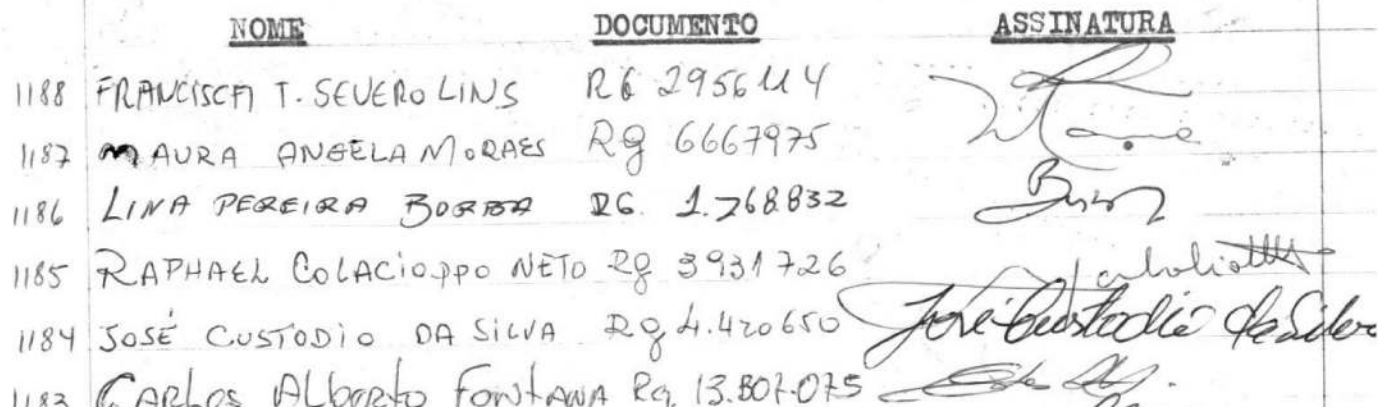 NOME DOCUMENTO ASSINATURA
1188 FRANCISCA T. SEVERO LINS RG 2956114
1187 MAURA ANGELA MORAES Rg 6667975
1186 LINA PEREIRA BORBA RG. 1.768832
1185 RAPHAEL COLACIOPPO NETO Rg 3931726
1184 JOSÉ CUSTODIO DA SILVA Rg 4.420650 José Custodio da Silva
1183 CARLOS ALberto FontANA Rg. 13.807.075